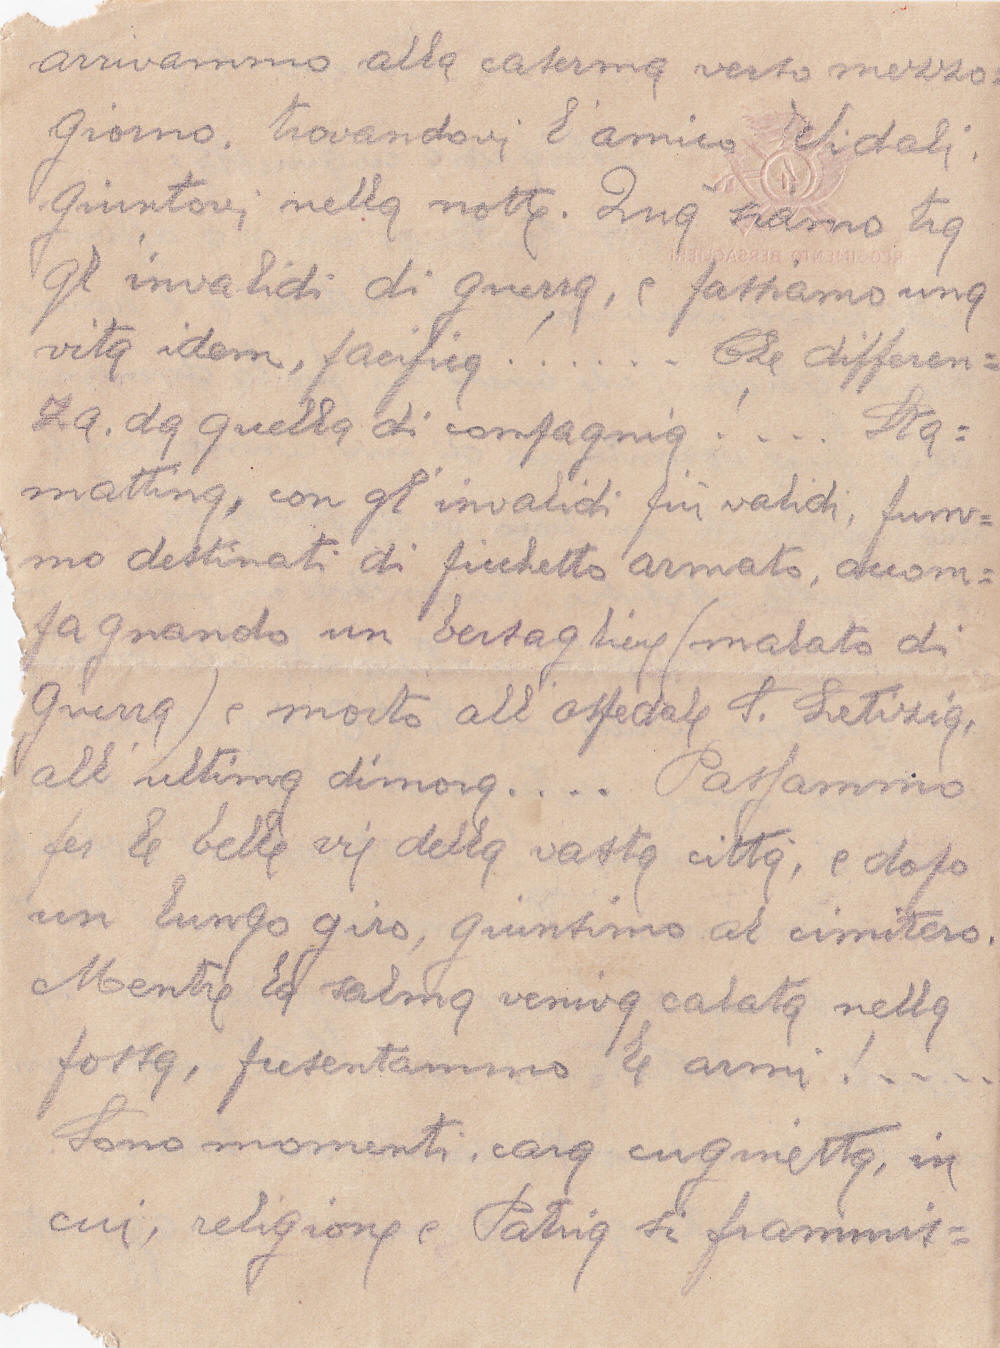 arrivammo alla caserma verso mezzo=
giorno. trovandovi l'amico Vidali.
giuntovi nella notte. Qua siamo tra
gl'invalidi di guerra, e passiamo una
vita idem, pacifica!...... Che differen=
za. da quella di compagnia!.... Sta=
mattina, con gl'invalidi più validi, fum=
mo destinati di picchetto armato, accom=
pagnando un bersagliere (malato di
guerra) e morto all'ospedale S. Letizia,
all'ultima dimora.... Passammo
per le belle vie della vasta città, e dopo
un lungo giro, giunsimo al cimitero.
Mentre la salma veniva calata nella
fossa, presentammo le armi!....
Sono momenti. cara cuginetta, in
cui, religione e Patria si frammis=
REGGIMENTO BERSAGLIERI